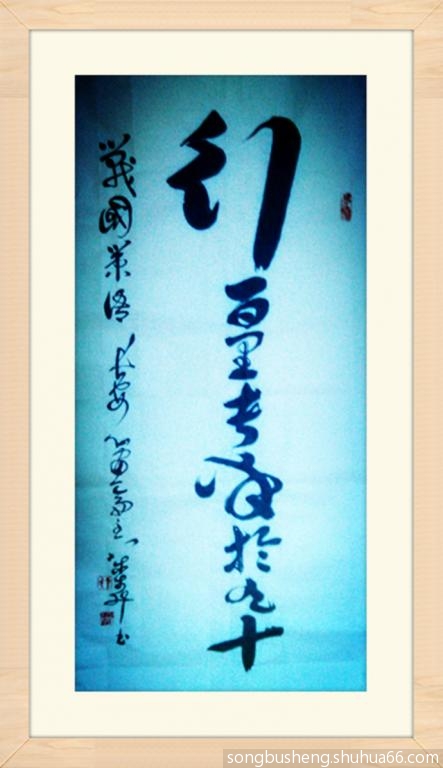 行百里者半於九十
戰國策語 長安
songbusheng.shuhua66.com